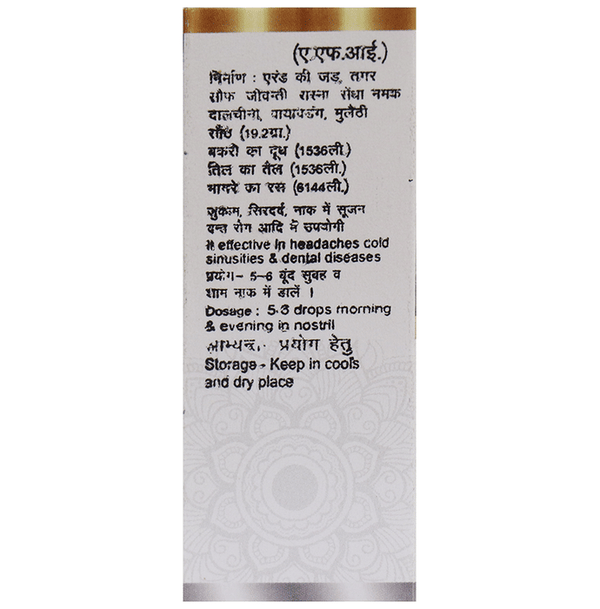 (ए.एफ.आई.)
निर्माण : एरंड की जड़, तगर
सौंफ जीवन्ती रास्ना सेंधा नमक
दालचीनी, वायविडंग, मुलैठी
सौंठ (19.2ग्रा.)
बकरी का दूध (1536ली.)
तिल का तैल (1536ली.)
भांगरे का रस (6144ली.)
जुकाम, सिरदर्द, नाक में सूजन
दन्त रोग आदि में उपयोगी
It effective In headaches cold
sinusities & dental diseases
प्रयोग- 5-6 बूंद सुबह व
शाम नाक में डालें ।
Dosage : 5-6 drops morning
& evening in nostril
प्रयोग हेतु
Storage - Keep in cools
and dry place